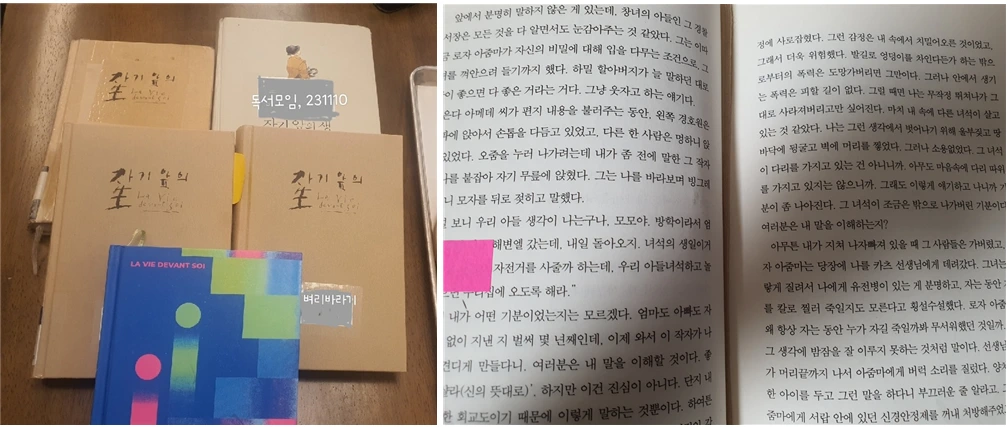 生
자기 앞의
독서모임, 231110
자기 앞의 생
生
자기 앞의
生
자기 앞의
LA VIE DEVANT SOI
벼리바라기
앞에서 분명히 말하지 않은 게 있는데, 창녀의 아들인 그 경찰
서장은 모든 것을 다 알면서도 눈감아주는 것 같았다. 그는 이따
로자 아줌마가 자신의 비밀에 대해 입을 다무는 조건으로, 그
껴안으러 들기까지 했다. 하밀 할아버지가 늘 말하던 대로
좋으면 다 좋은 거라는 거다. 그냥 웃자고 하는 얘기다.
은다 아메데 씨가 편지 내용을 불러주는 동안, 왼쪽 경호원은
앉아서 손톱을 다듬고 있었고, 다른 한 사람은 멍하니 앉
있었다. 오줌을 누러 나가려는데 내가 좀 전에 말한 그 작자
나를 붙잡아 자기 무릎에 앉혔다. 그는 나를 바라보며 빙그레
모자를 뒤로 젖히고 말했다.
보니 우리 아들 생각이 나는구나, 모모야. 방학이라서 엄
해변엘 갔는데, 내일 돌아오지. 녀석의 생일이거
자전거를 사줄까 하는데, 우리 아들녀석하고 놀
집에 오도록 해라.”
내가 어떤 기분이었는지는 모르겠다. 엄마도 아빠도 자
없이 지낸 지 벌써 몇 년째인데, 이제 와서 이 작자가 나
견디게 만들다니. 여러분은 내 말을 이해할 것이다. 좋
(신의 뜻대로)’. 하지만 이건 진심이 아니다. 단지 내
한 회교도이기 때문에 이렇게 말하는 것뿐이다. 하여튼
정에 사로잡혔다. 그런 감정은 내 속에서 치밀어오른 것이었고,
그래서 더욱 위험했다. 발길로 엉덩이를 차인다든가 하는 밖으
로부터의 폭력은 도망가버리면 그만이다. 그러나 안에서 생기
는 폭력은 피할 길이 없다. 그럴 때면 나는 무작정 뛰쳐나가 그
대로 사라져버리고만 싶어진다. 마치 내 속에 다른 녀석이 살고
있는 것 같았다. 나는 그런 생각에서 벗어나기 위해 울부짖고 땅
바닥에 뒹굴고 벽에 머리를 찧었다. 그러나 소용없었다. 그 녀석
이 다리를 가지고 있는 건 아니니까. 아무도 마음속에 다리 따위
를 가지고 있지는 않으니까. 그래도 이렇게 얘기하고 나니까 기
분이 좀 나아진다. 그 녀석이 조금은 밖으로 나가버린 기분이다
여러분은 내 말을 이해하는지?
아무튼 내가 지쳐 나자빠져 있을 때 그 사람들은 가버렸고,
자 아줌마는 당장에 나를 카츠 선생님에게 데려갔다. 그녀는
랗게 질려서 나에게 유전병이 있는 게 분명하고, 자는 동안
를 칼로 찔러 죽일지도 모른다고 횡설수설했다. 로자 아줌
왜 항상 자는 동안 누가 자길 죽일까봐 무서워했던 것일까.
그 생각에 밤잠을 잘 이루지 못하는 것처럼 말이다. 선생님
가 머리끝까지 나서 아줌마에게 버럭 소리를 질렀다. 양처
한 아이를 두고 그런 말을 하다니 부끄러운 줄 알라고. 그
줌마에게 서랍 안에 있던 신경안정제를 꺼내 처방해주었